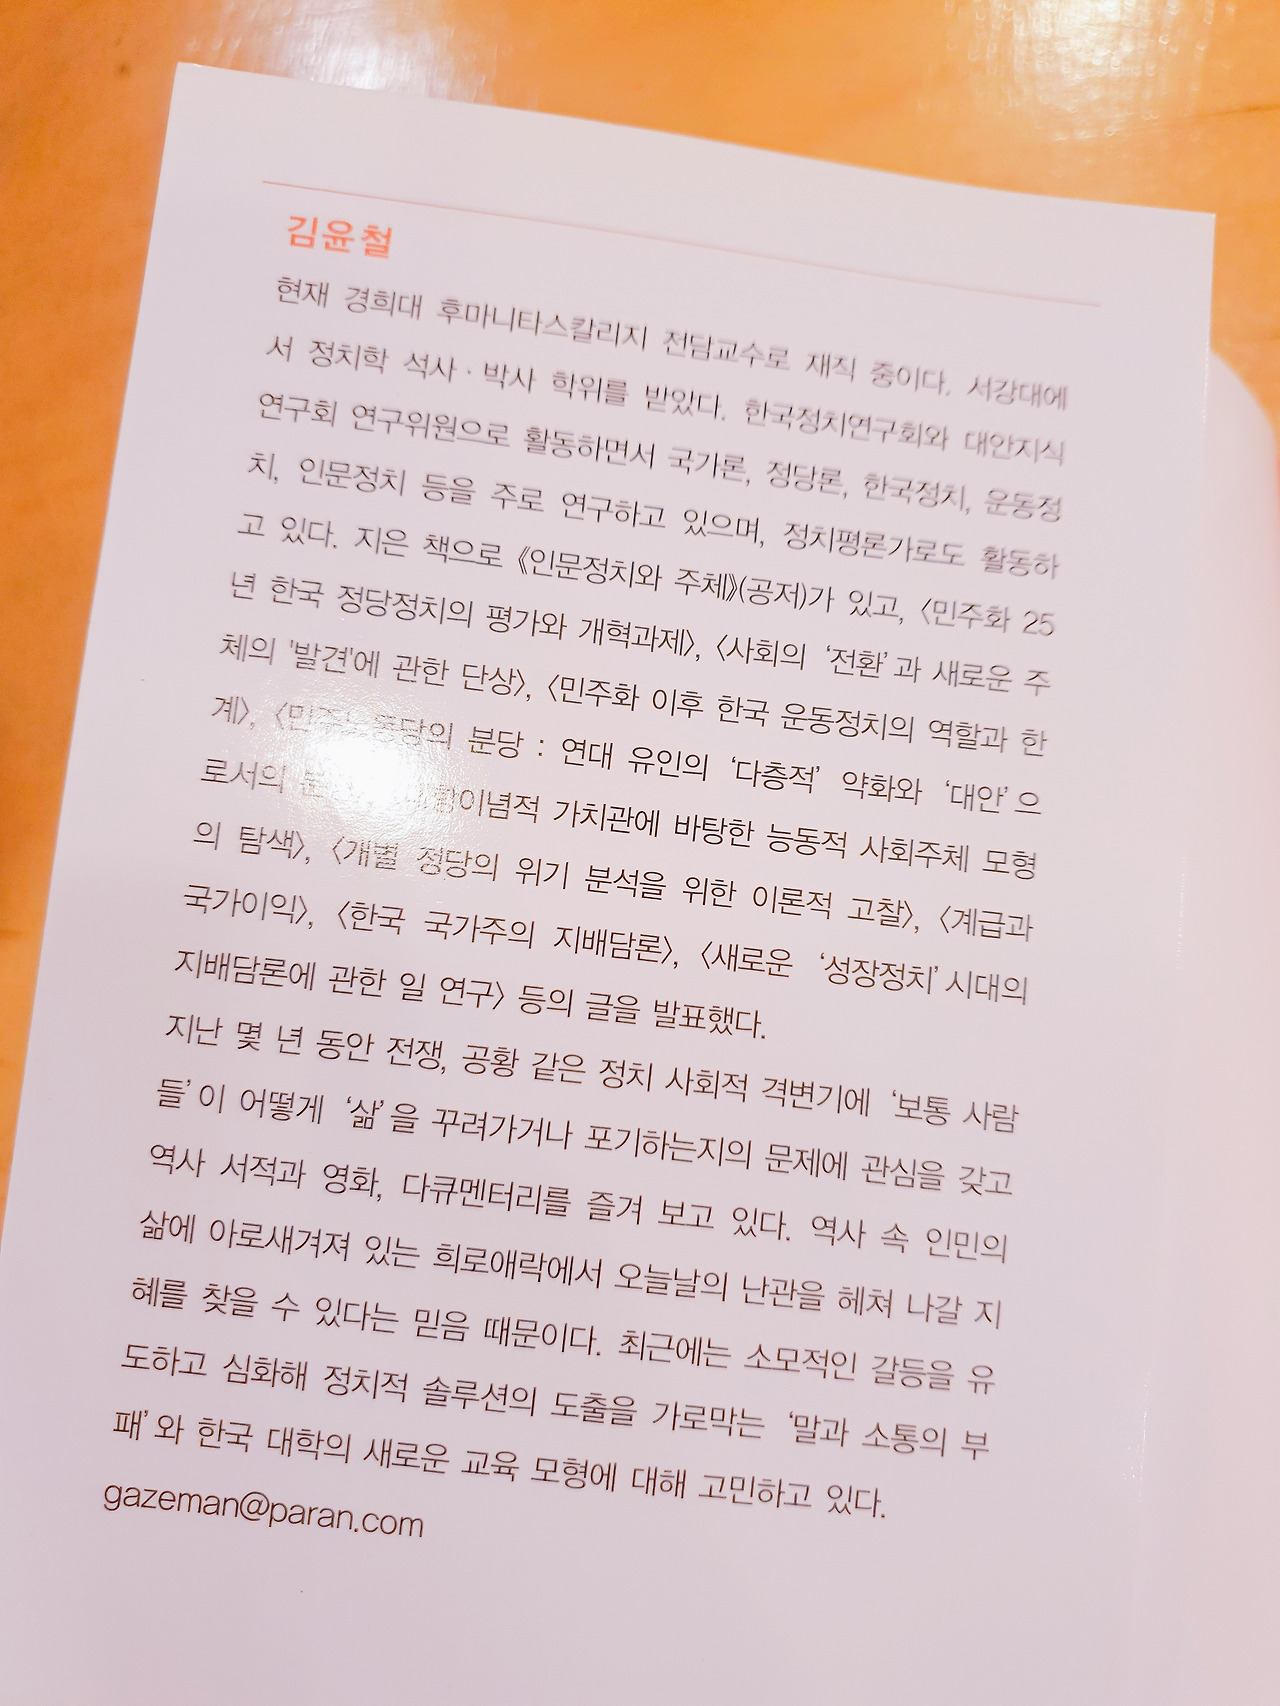 김윤철
현재 경희대 후마니타스칼리지 전담교수로 재직 중이다. 서강대에
서 정치학 석사·박사 학위를 받았다. 한국정치연구회와 대안지식
연구회 연구위원으로 활동하면서 국가론, 정당론, 한국정치, 운동정
치, 인문정치 등을 주로 연구하고 있으며, 정치평론가로도 활동하
고 있다. 지은 책으로 《인문정치와 주체》(공저)가 있고, 〈민주화 25
년 한국 정당정치의 평가와 개혁과제〉, 〈사회의 ‘전환’과 새로운 주
체의 '발견'에 관한 단상〉, 〈민주화 이후 한국 운동정치의 역할과 한
계〉, 분당 : 연대 유인의 ‘다층적’ 약화와 ‘대안’으
로서의 가치관에 바탕한 능동적 사회주체 모형
의 탐색〉, 〈개별 정당의 위기 분석을 위한 이론적 고찰〉, 〈계급과
국가이익〉, 〈한국 국가주의 지배담론〉, 〈새로운 ‘성장정치’시대의
지배담론에 관한 일 연구〉 등의 글을 발표했다.
지난 몇 년 동안 전쟁, 공황 같은 정치 사회적 격변기에 ‘보통 사람
들’이 어떻게 ‘삶’을 꾸려가거나 포기하는지의 문제에 관심을 갖고
역사 서적과 영화, 다큐멘터리를 즐겨 보고 있다. 역사 속 인민의
삶에 아로새겨져 있는 희로애락에서 오늘날의 난관을 헤쳐 나갈 지
혜를 찾을 수 있다는 믿음 때문이다. 최근에는 소모적인 갈등을 유
도하고 심화해 정치적 솔루션의 도출을 가로막는 ‘말과 소통의 부
패’와 한국 대학의 새로운 교육 모형에 대해 고민하고 있다.
gazeman@paran.com